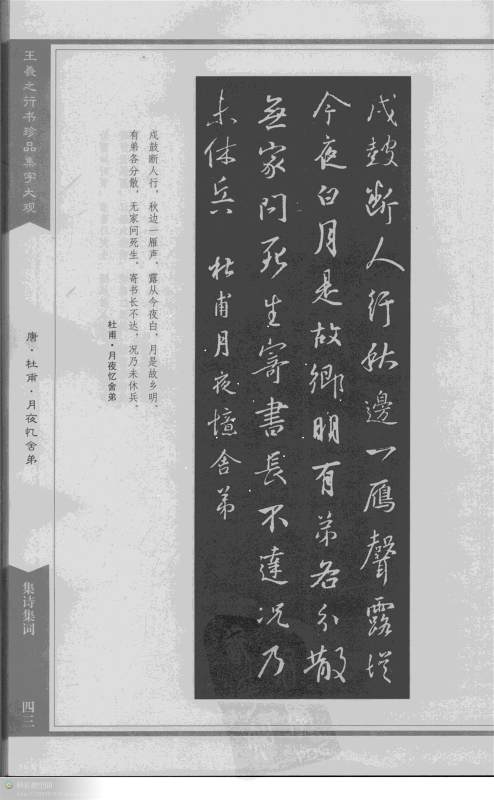 戍鼓断人行秋邊一雁聲露從
今夜白月是故鄉明有弟各分散
無家問死生寄書長不達况乃
未休兵 杜甫月夜憶舍弟
戍鼓断人行，秋边一雁声。露从今夜白，月是故乡明。
有弟各分散，无家问死生。寄书长不达，况乃未休兵。
杜甫·月夜忆舍弟
王羲之行书珍品集字大观
唐·杜甫·月夜忆舍弟
集诗集词
四三